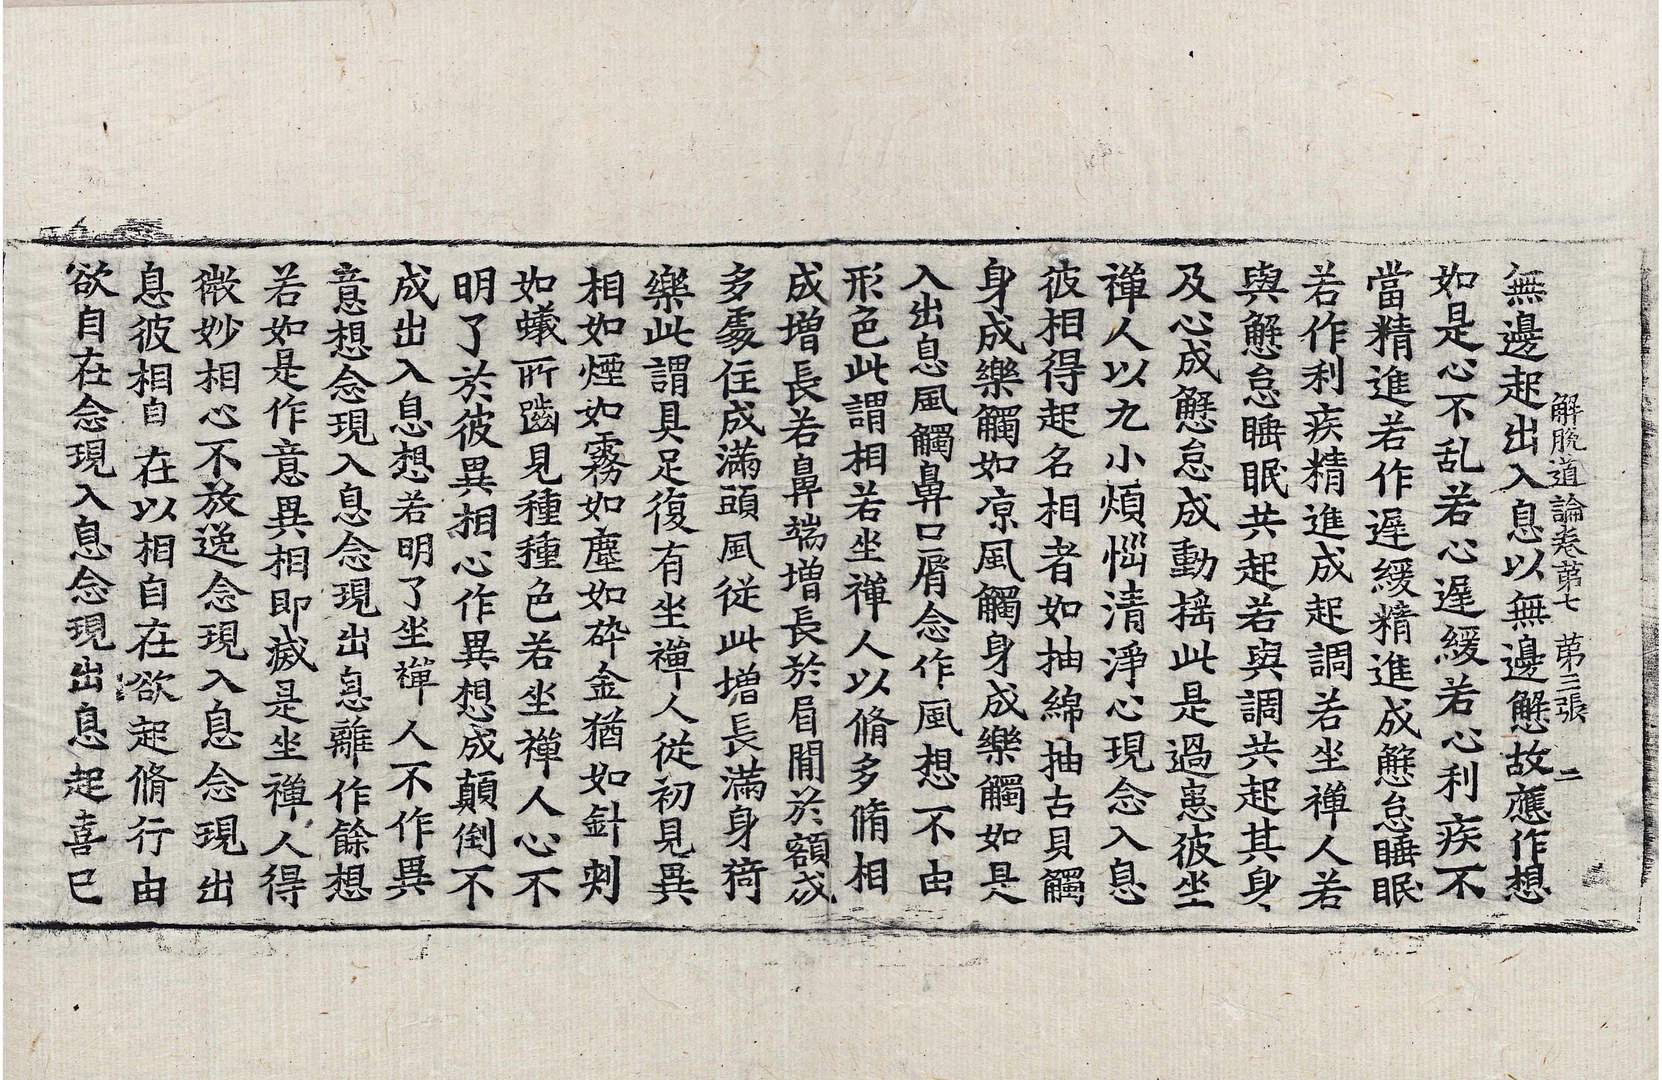 解脫道論卷苐七　苐三張　二
無邊起出入息以無邊懈故應作想
如是心不乱若心遲緩若心利疾不
當精進若作遲緩精進成懈怠睡眠
若作利疾精進成起調若坐禪人若
與懈怠睡眠共起若與調共起其身
及心成懈怠成動搖此是過患彼坐
禪人以九小煩惱清淨心現念入息
彼相得起名相者如抽綿抽古貝觸
身成樂觸如凉風觸身成樂觸如是
入出息風觸鼻口脣念作風想不由
形色此謂相若坐禪人以脩多脩相
成增長若鼻端增長於眉間於額成
多處住成滿頭風從此增長滿身猗
樂此謂具足復有坐禪人從初見異
相如煙如霧如塵如碎金猶如針刾
如蟻所齧見種種色若坐禪人心不
明了於彼異相心作異想成顛倒不
成出入息想若明了坐禪人不作異
意想念現入息念現出息離作餘想
若如是作意異相即滅是坐禪人得
微妙相心不放逸念現入息念現出
息彼相自在以相自在欲起脩行由
欲自在念現入息念現出息起喜已